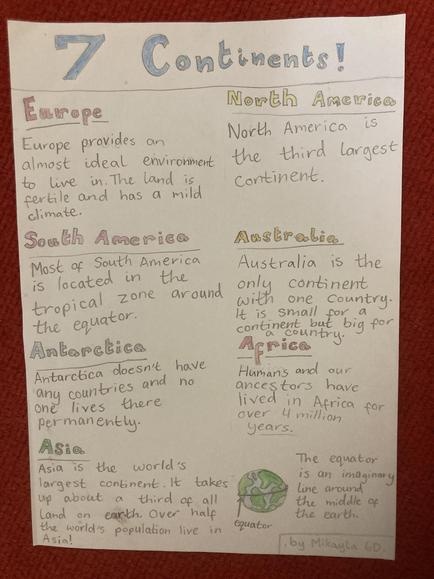 7 Continents!
Europe
Europe provides an
almost ideal environment
to live in. The land is
fertile and has a mild
climate.
North America
North America is
the third largest
continent.
South America
Most of South America
is located in the
tropical zone around
the equator.
Australia
Australia is the
only continent
with one country.
It is small for a
continent but big for
a country.
Antarctica
Antarctica doesn't have
any countries and no
one lives there
permanently.
Africa
Humans and our
ancestors have
lived in Africa for
over 4 million
years.
Asia
Asia is the world's
largest continent. It takes
up about a third of all
land on earth. Over half
the world's population live in
Asia!
equator
The equator
is an imaginary
line around
the middle of
the earth.
by Mikayla 6D.